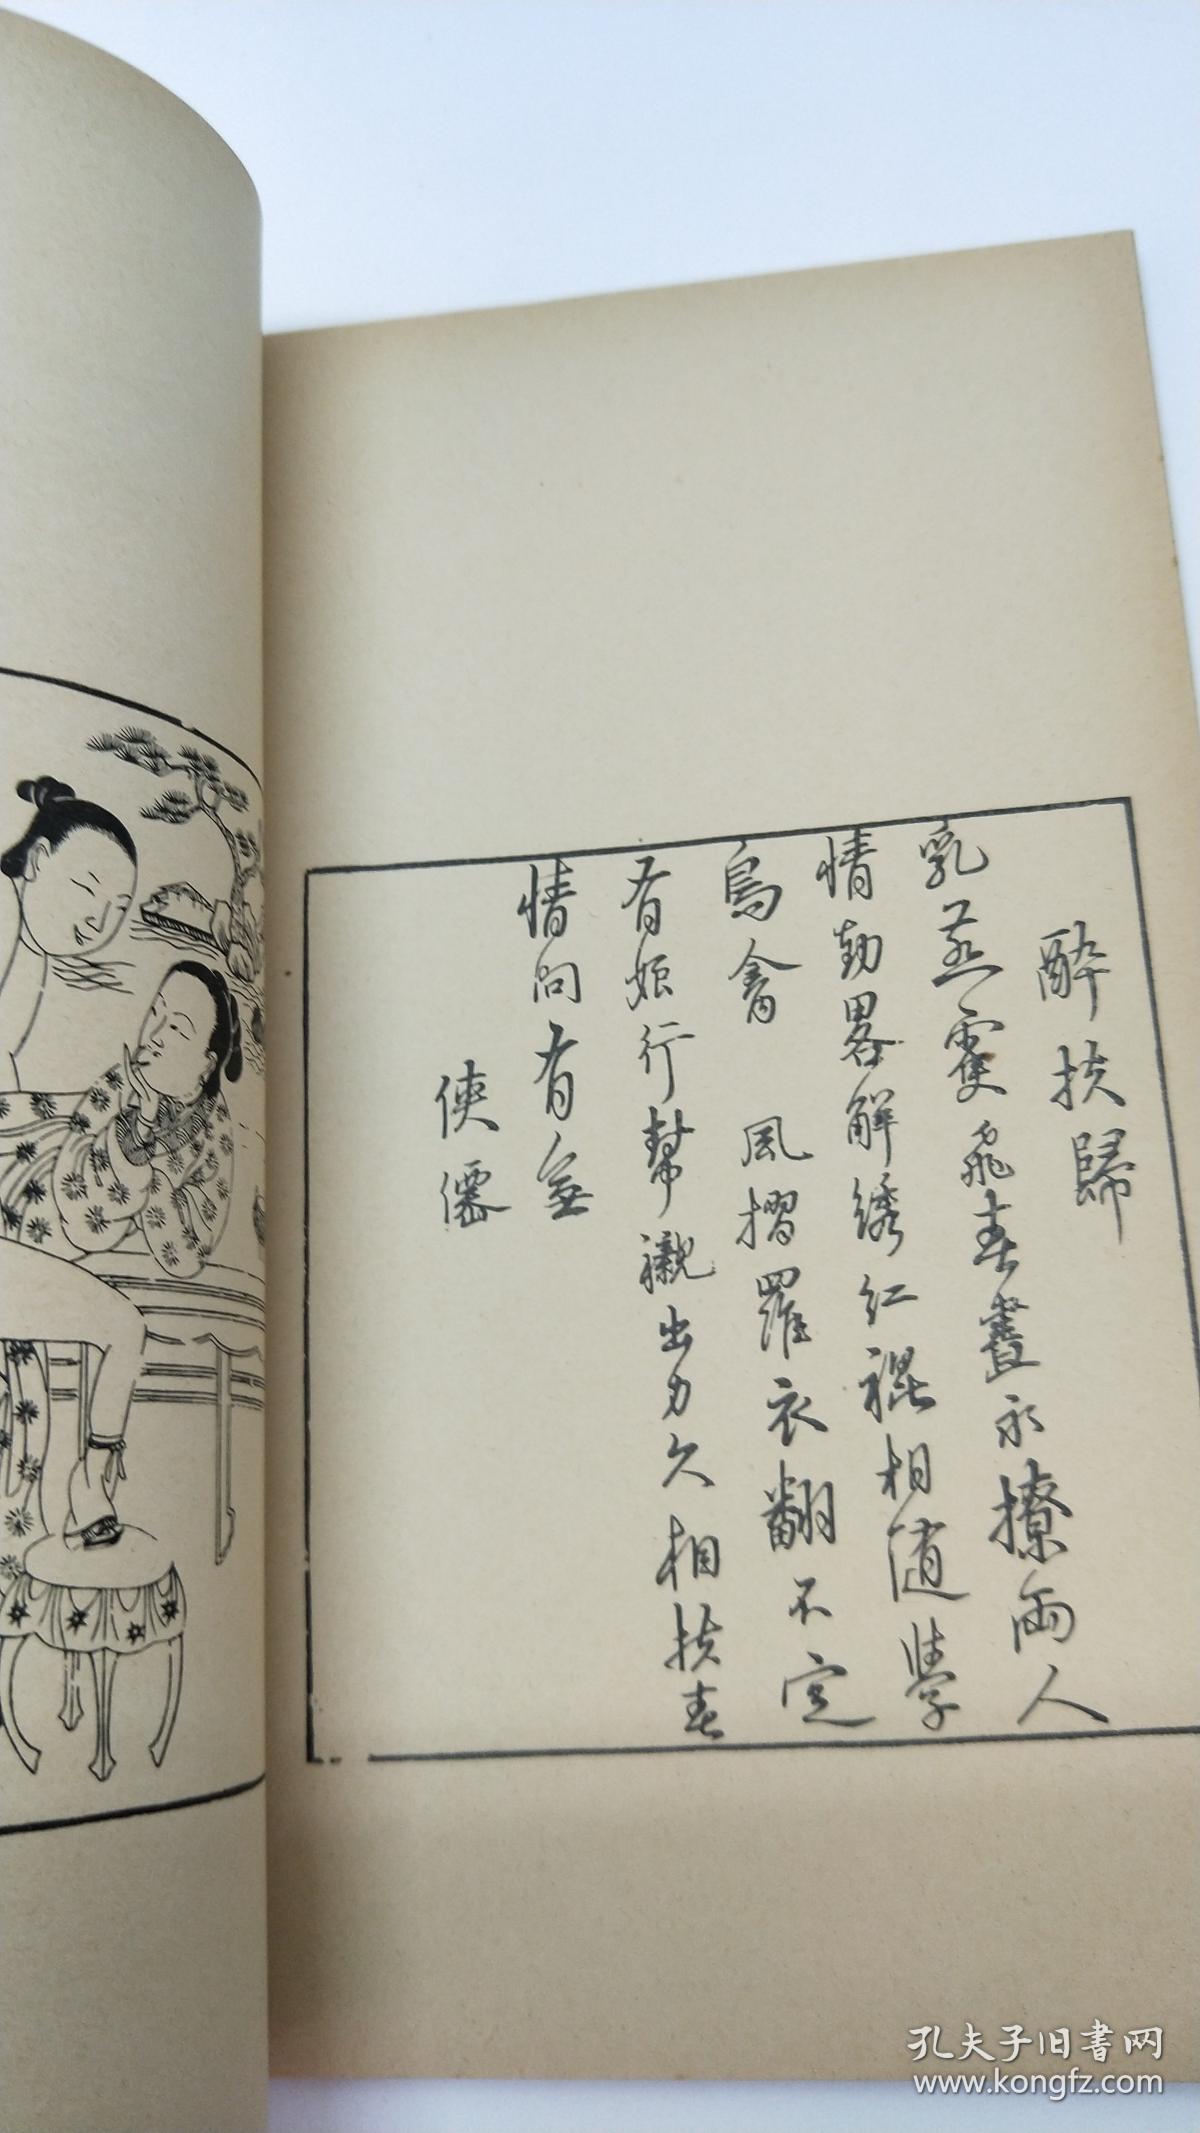 醉扶歸
乳燕雙飛春晝永撩兩人
情動畧解綉紅裩相隨學
鳥禽 風摺羅衣翻不定
有娘行幫襯出力久相扶春
情問有無
俠僊
孔夫子旧书网
www.kongfz.com